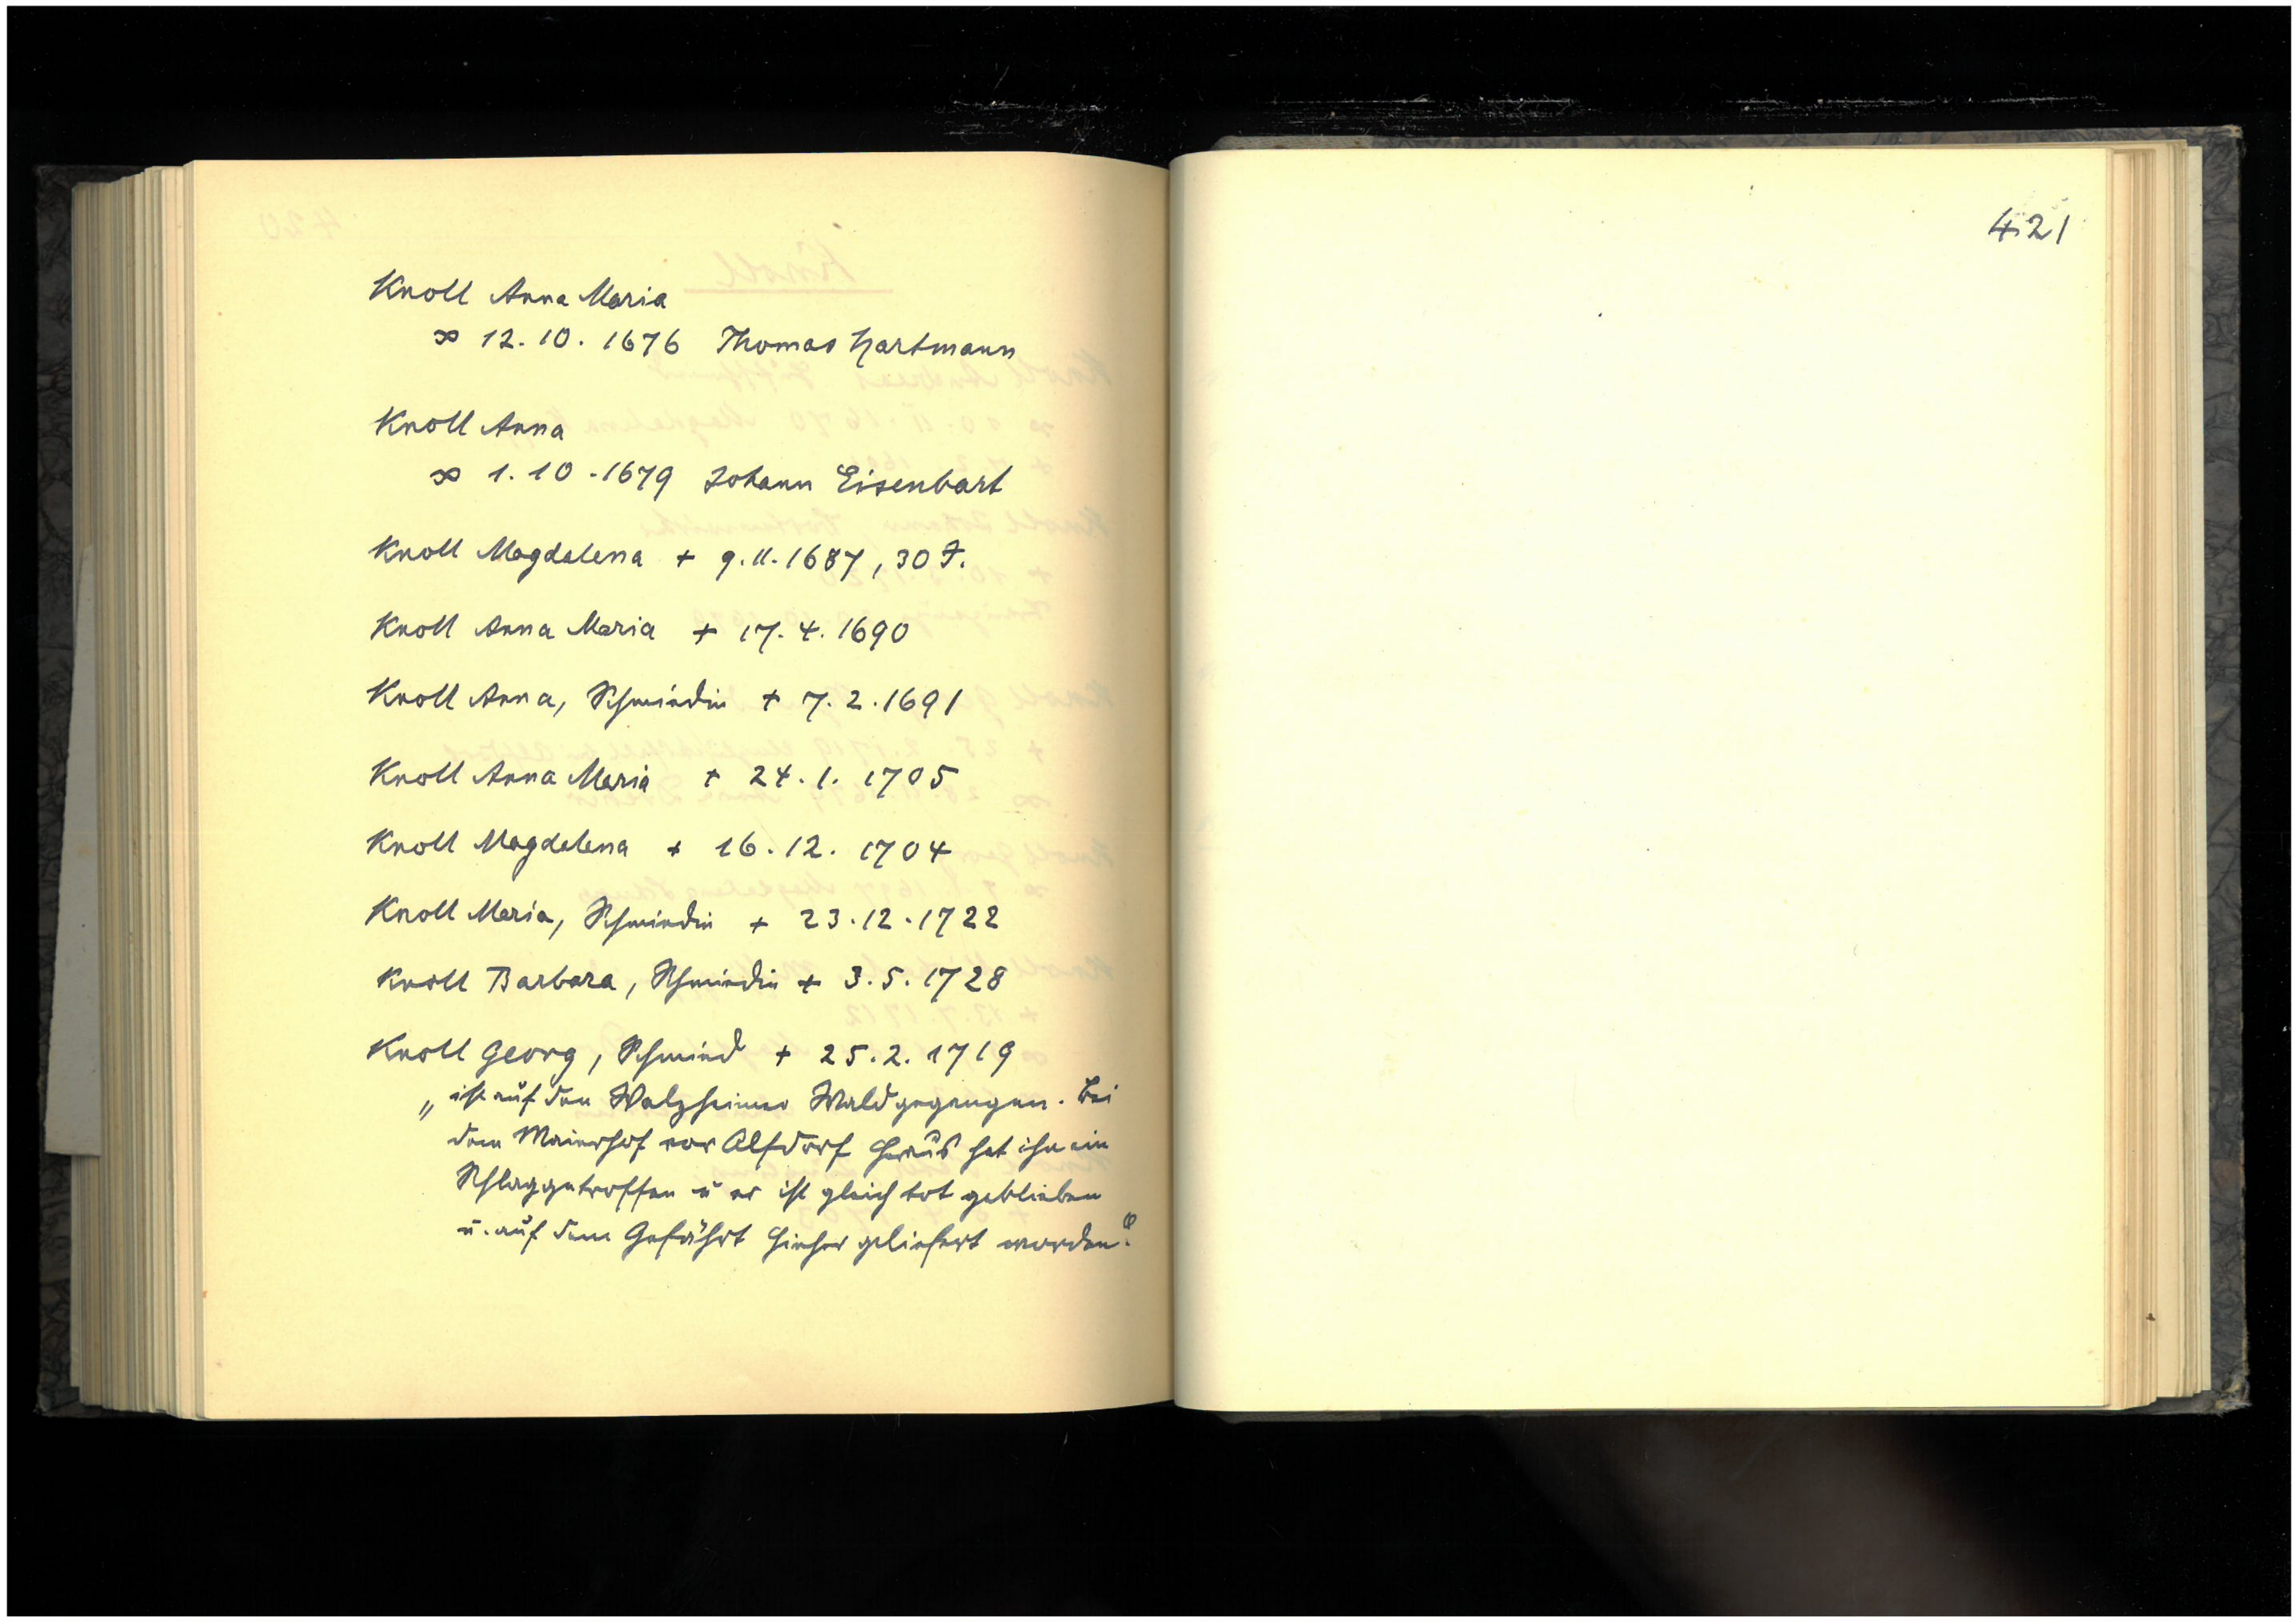 Knoll Anna Maria
∞ 12. 10. 1676 Thomas Hartmann
Knoll Anna
∞ 1. 10. 1679 Johann Eisenbart
Knoll Magdalena + 9. 11. 1687, 30 J.
Knoll Anna Maria + 17. 4. 1690
Knoll Anna, Schmiedin + 7. 2. 1691
Knoll Anna Maria + 24. 1. 1705
Knoll Magdalena + 16. 12. 1704
Knoll Maria, Schmiedin + 23. 12. 1722
Knoll Barbara, Schmiedin + 3. 5. 1728
Knoll Georg, Schmied + 25. 2. 1719
„ist auf den Walzheimer Wald gegangen. Bei
dem Maierhof vor Alfdorf heraus hat ihn ein
Schlag getroffen u er ist gleich tot geblieben
u. auf dem Gefährt hieher geliefert worden."
421